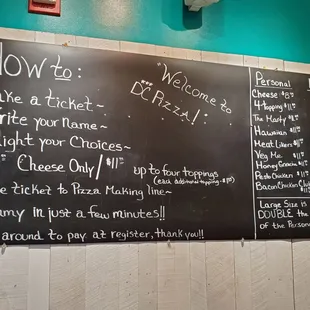 How to:
ake a ticket~
rite your name~
light your choices~
Cheese Only/ $11
up to four toppings
(each additional topping
e ticket to Pizza Making line~
in just a few minutes!!
around to pay at register, thank you!!
Welcome to
DC Pizza!
Personal
Cheese
4-topping
The Hasty
Hawaiian
Meat Lovers
Veg Me
Honey
Pesto Chicken
Bacon Chicken
Large Size is
DOUBLE the
of the Persona